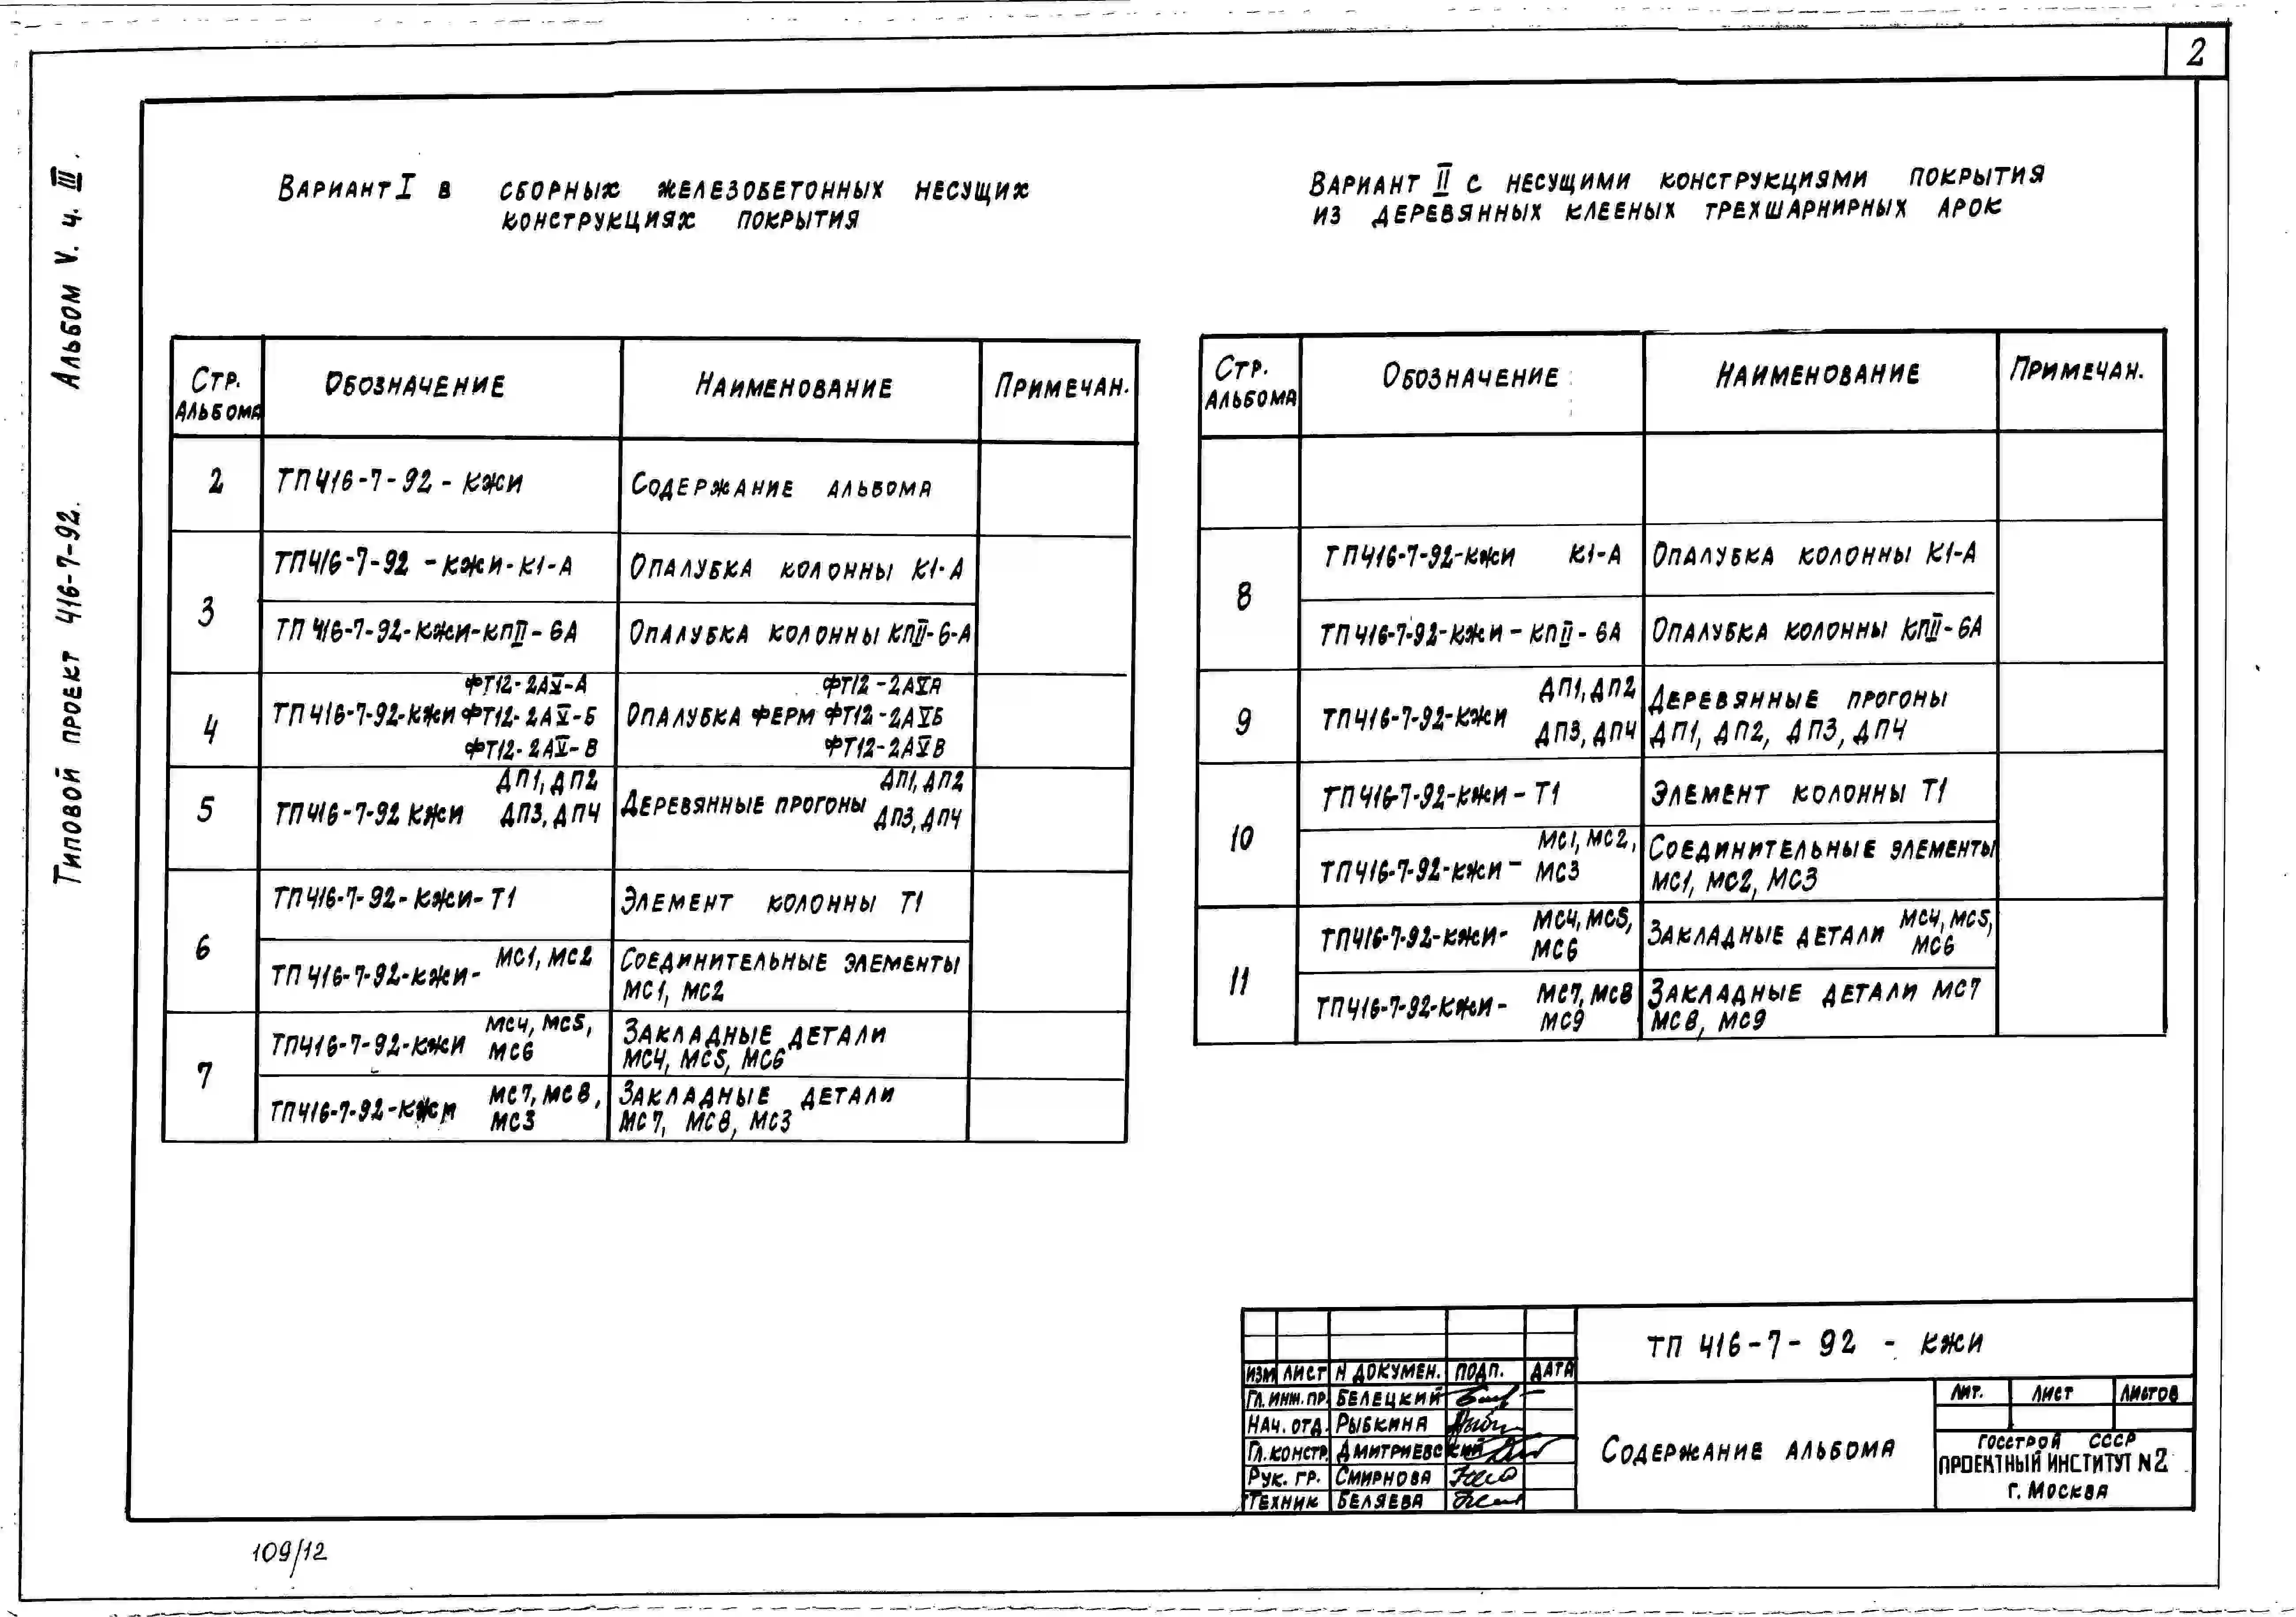 2
Альбом V. ч. III.
Типовой проект 416-7-92.
Вариант I в сборных железобетонных несущих
конструкциях покрытия
Стр. альбома | Обозначение | Наименование | Примечан.
2 | ТП 416-7-92-КЖИ | Содержание альбома
3 | ТП 416-7-92-КЖИ-К1-А | Опалубка колонны К1-А
ТП 416-7-92-КЖИ-КПII-6А | Опалубка колонны КПII-6-А
4 | ТП 416-7-92-КЖИ ФТ12-2АV-А ФТ12-2АV-Б ФТ12-2АV-В | Опалубка ферм ФТ12-2АVА ФТ12-2АVБ ФТ12-2АVВ
5 | ТП 416-7-92 КЖИ ДП1, ДП2 ДП3, ДП4 | Деревянные прогоны ДП1, ДП2 ДП3, ДП4
6 | ТП 416-7-92-КЖИ-Т1 | Элемент колонны Т1
ТП 416-7-92-КЖИ- МС1, МС2 | Соединительные элементы МС1, МС2
7 | ТП 416-7-92-КЖИ МС4, МС5, МС6 | Закладные детали МС4, МС5, МС6
ТП 416-7-92-КЖИ МС7, МС8, МС3 | Закладные детали МС7, МС8, МС3
Вариант II с несущими конструкциями покрытия
из деревянных клееных трехшарнирных арок
Стр. альбома | Обозначение | Наименование | Примечан.
8 | ТП 416-7-92-КЖИ К1-А | Опалубка колонны К1-А
ТП 416-7-92-КЖИ-КПII-6А | Опалубка колонны КПII-6А
9 | ТП 416-7-92-КЖИ ДП1, ДП2 ДП3, ДП4 | Деревянные прогоны ДП1, ДП2, ДП3, ДП4
10 | ТП 416-7-92-КЖИ-Т1 | Элемент колонны Т1
ТП 416-7-92-КЖИ- МС1, МС2, МС3 | Соединительные элементы МС1, МС2, МС3
11 | ТП 416-7-92-КЖИ- МС4, МС5, МС6 | Закладные детали МС4, МС5, МС6
ТП 416-7-92-КЖИ- МС7, МС8 МС9 | Закладные детали МС7 МС8, МС9
ТП 416-7-92 - КЖИ
Изм Лист N докумен. Подп. Дата
Гл. инж. пр. Белецкий
Нач. отд. Рыбкина
Гл. констр. Дмитриевский
Рук. гр. Смирнова
Техник Беляева
Содержание альбома
Лит. Лист Листов
Госстрой СССР
Проектный институт N2
г. Москва
109/12